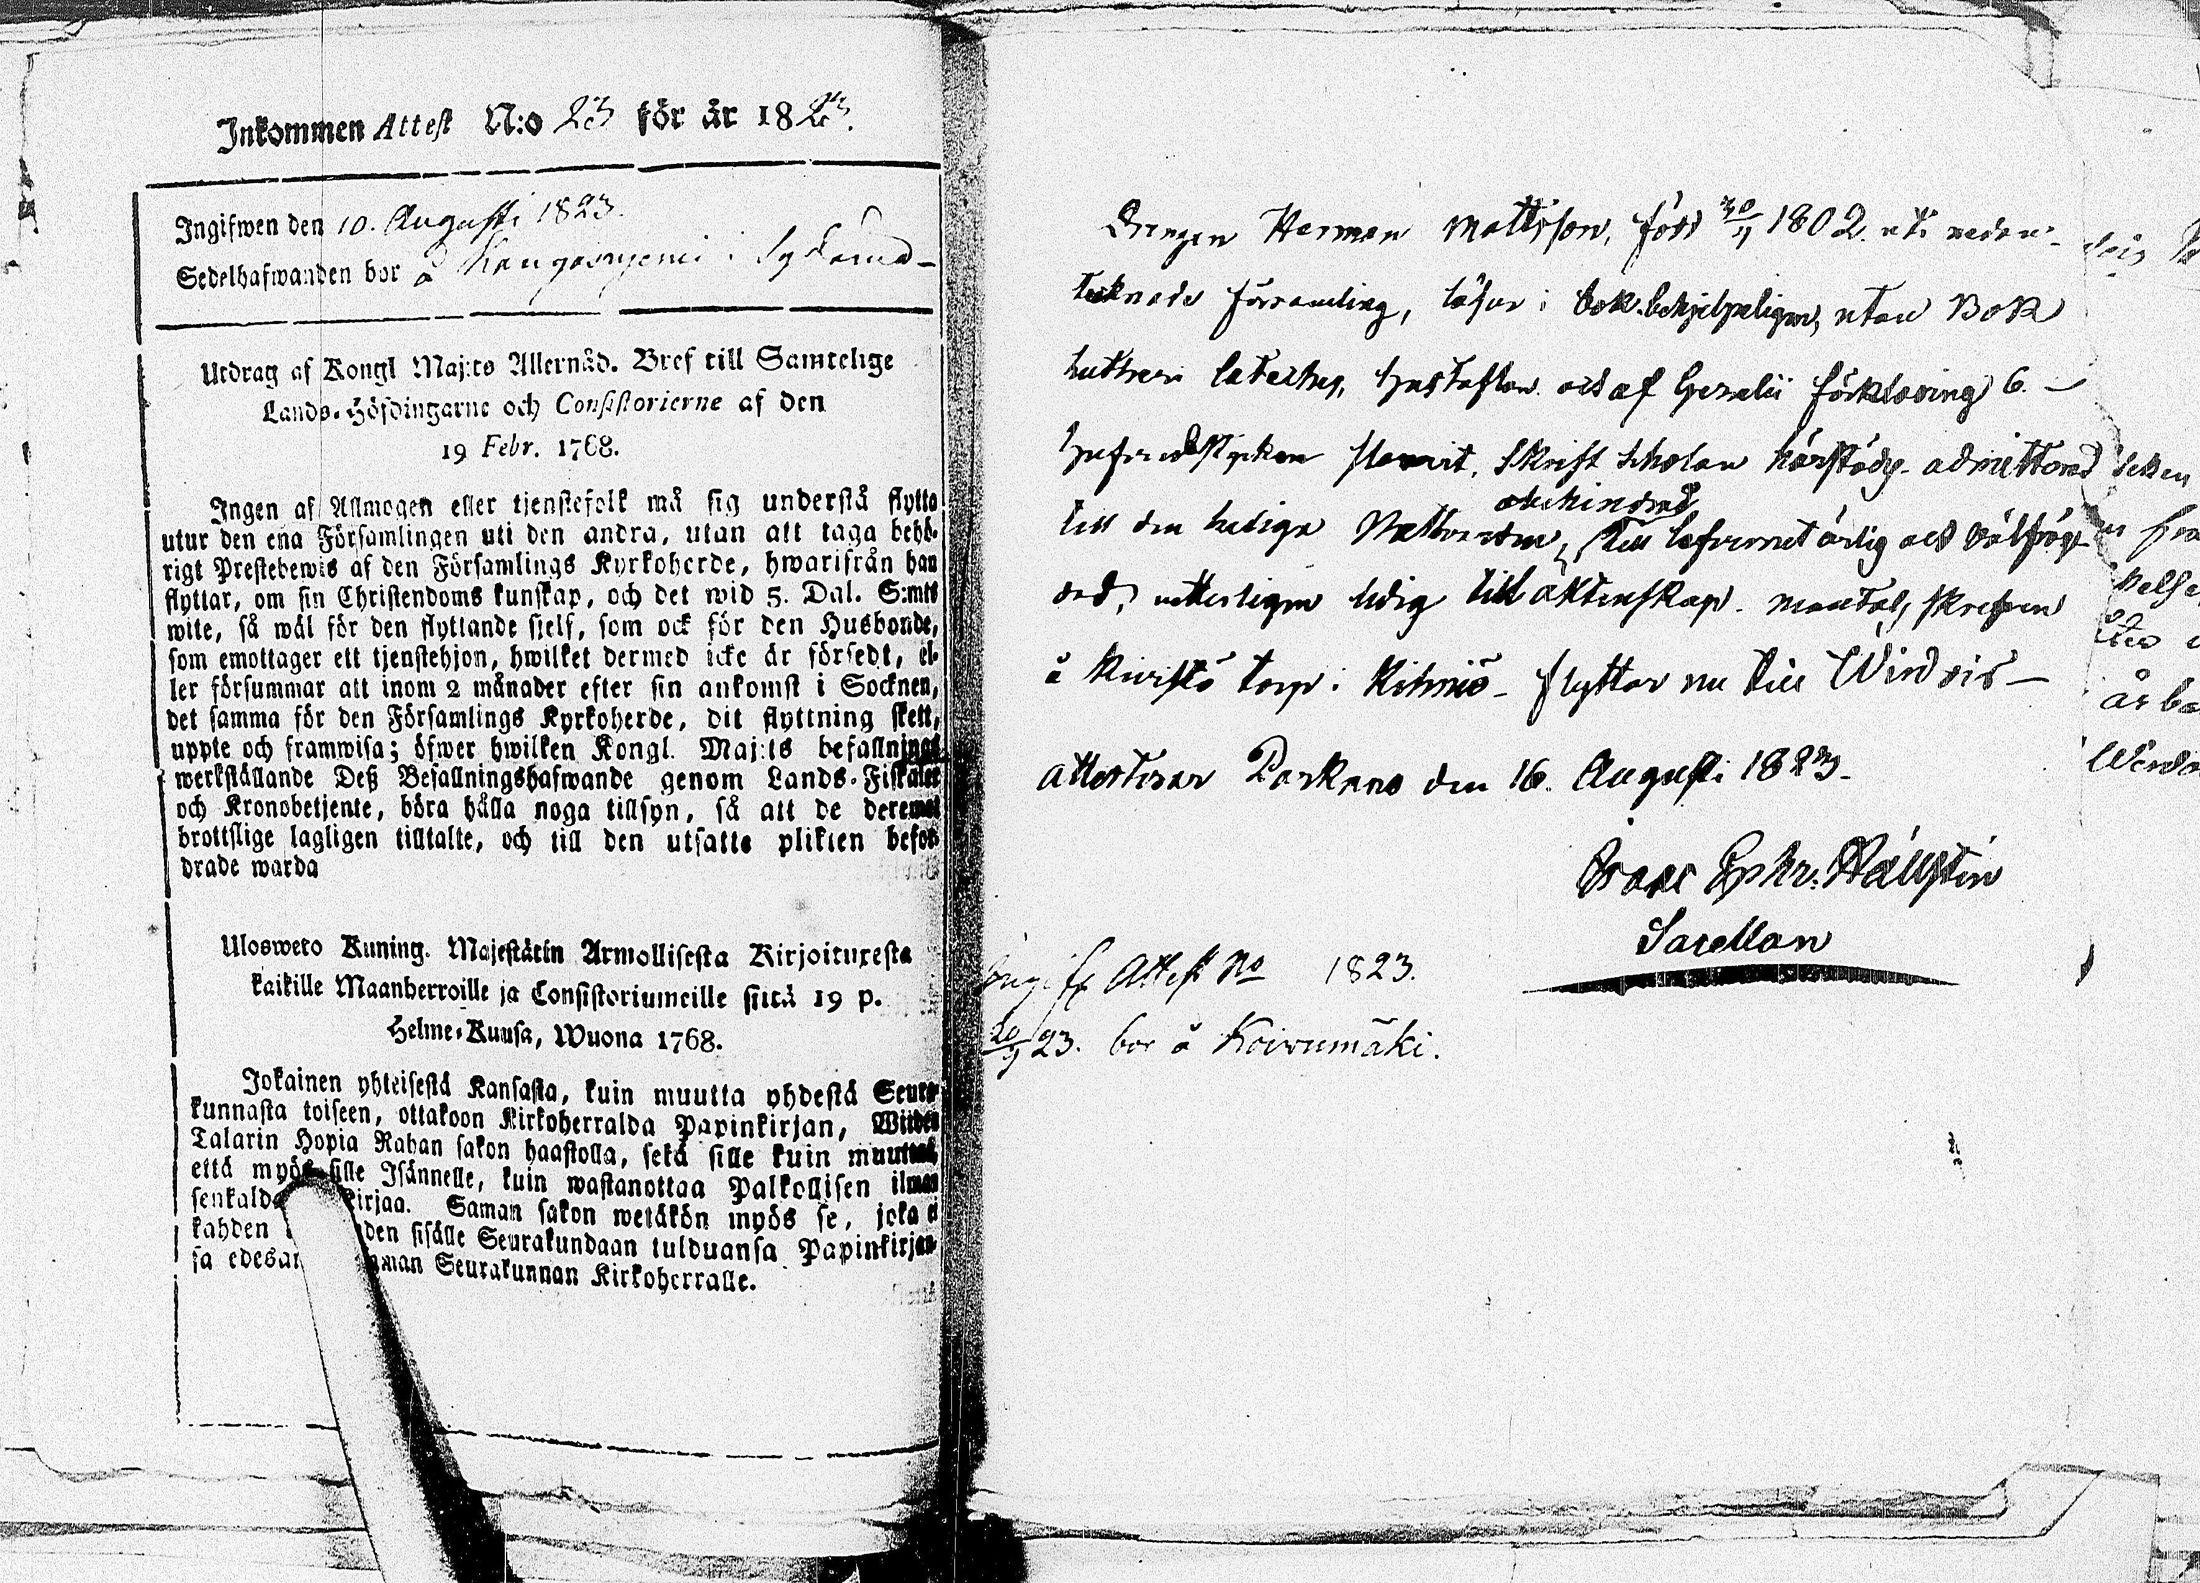 Inkommen Attest N:o 23 för år 1823.
Ingifwen den 10. Augusti 1823.
Sedelhafwanden bor å
Utdrag af Kongl Maj:ts Allernåd. Bref till Samtelige
Lands-Höfdingarne och Consistorierne af den
19 Febr. 1768.
Ingen af Allmogen eller tjenstefolk må sig understå flytta
utur den ena Församlingen uti den andra, utan att taga behö-
rigt Prestebewis af den Församlings Kyrkoherde, hwarifrån han
flyttar, om sin Christendoms kunskap, och det wid 5. Dal. S:mts
wite, så wäl för den flyttande sielf, som ock för den Husbonde,
som emottager ett tjenstehjon, hwilket dermed icke är försedt, el-
ler försummar att inom 2 månader efter sin ankomst i Socknen,
det samma för den Församlings Kyrkoherde, dit flyttning skett,
uppte och framwisa; öfwer hwilken Kongl. Maj:ts befallnings
werkställande Deß Befallningshafwande genom Lands-Fiskaler
och Kronobetjente, böra hålla noga tillsyn, så att de deremot
brottslige lagligen tilltalte, och till den utsatte plikten befor-
drade warda
Ulosweto Kuning. Majestätin Armollisesta Kirjoituxesta
kaikille Maanherroille ja Consistoriumeille siitä 19 p.
Helme-Kuusa, Wuona 1768.
Jokainen yhteisestä Kansasta, kuin muutta yhdestä Seura-
kunnasta toiseen, ottakoon Kirkoherralda Papinkirjan, Wiiden
Talarin Hopia Rahan sakon haastolla, sekä sille kuin muuttaa,
että myös sille Isännelle, kuin wastanottaa Palkollisen ilman
senkalda kirjaa. Saman sakon wetäkön myös se, joka ei
kahden den sisälle Seurakundaan tulduansa Papinkirjan-
sa edesan man Seurakunnan Kirkoherralle.
Drengen Herman Mattsson, född 30/11 1802. uti nedan-
tecknade församling, läser i bok behjelpeligen, utan Bok
Lutheri Cateches, Hustaflan och af Gezelii förklaring 6.
Hufvudstycken skrift scholan admitterad
till den heliga Nattvarden, obehindrad till lefvernet ärlig och välfräg-
ad, ledig till äktenskap. mantalsskrefven
å Kuristo torp i Kihniö - flyttar nu till Wirdois -
attesterar Parkano den 16. Augusti 1823.
Isaac Ephr. Hällstin
Sacellan
Ingif. Attest No 1823.
23. bor å Koivumäki.